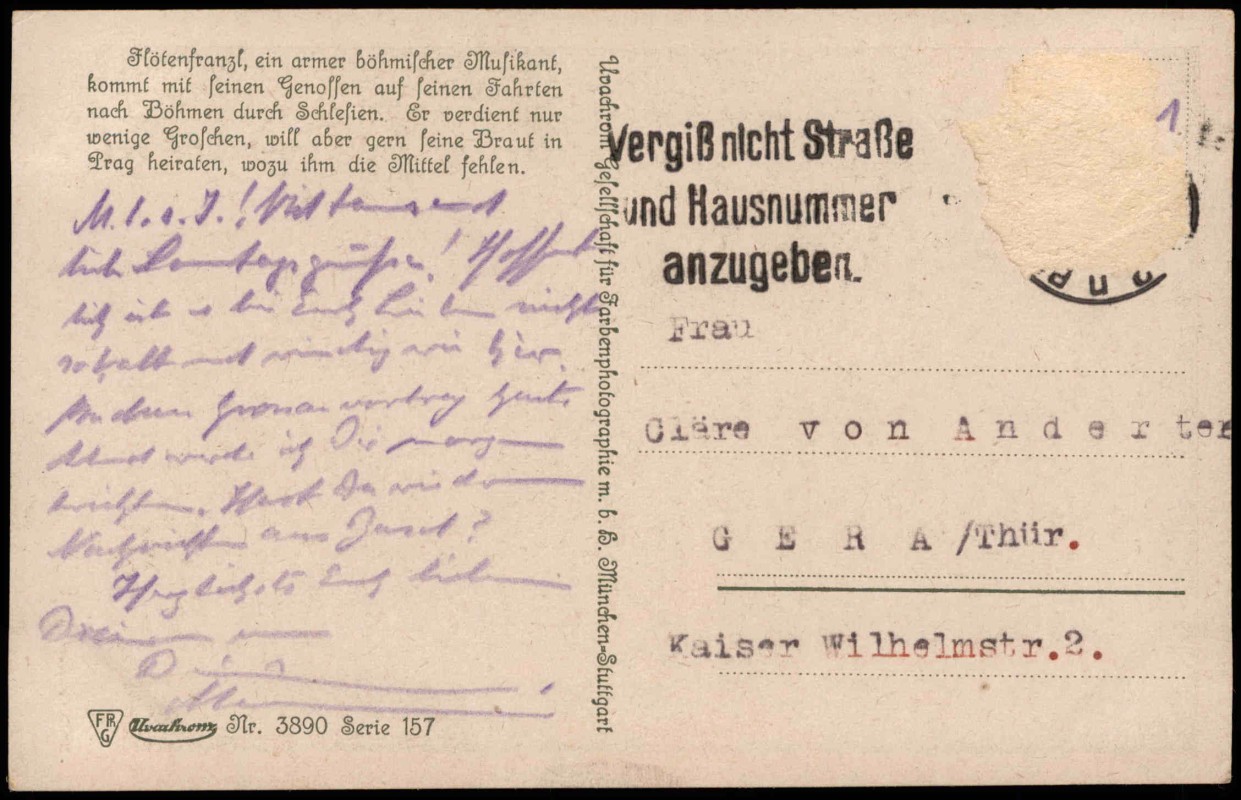 Flötenfranzl, ein armer böhmischer Musikant,
kommt mit seinen Genossen auf seinen Fahrten
nach Böhmen durch Schlesien. Er verdient nur
wenige Groschen, will aber gern seine Braut in
Prag heiraten, wozu ihm die Mittel fehlen.
M. l. s. J.! Viel tausend
lich ist es bei Euch Lieben nicht
so kalt und windig wie hier.
vortrag heute
Abend werde ich Dir morgen
berichten. Hast Du wieder
Nachrichten aus
Herzlichst Euch lieben
FPhG Uvachrom Nr. 3890 Serie 157
Uvachrom Gesellschaft für Farbenphotographie m. b. H. München-Stuttgart
Vergiß nicht Straße
und Hausnummer
anzugeben.
1
Frau
Cläre von Anderten
GERA/Thür.
Kaiser Wilhelmstr.2.